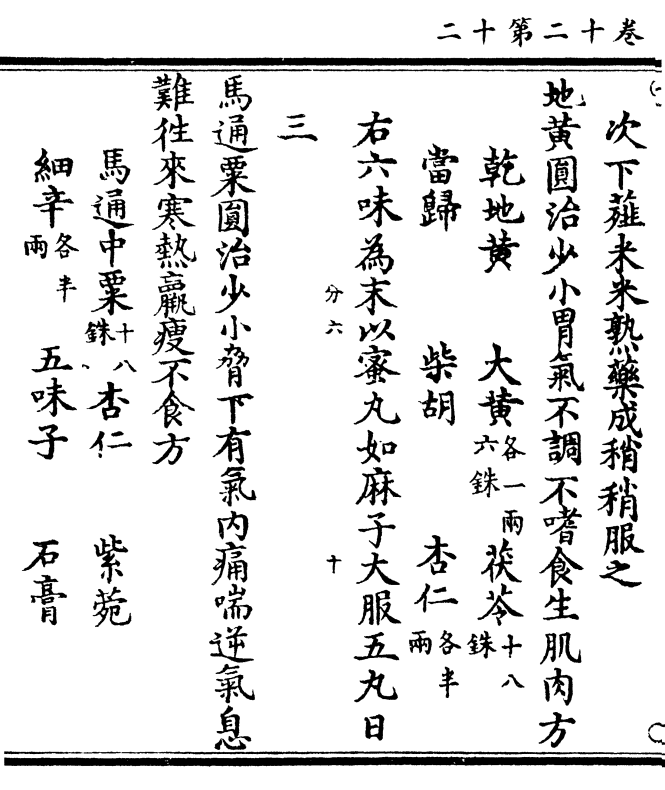 卷十二第十二
次下薤米米熟藥成稍稍服之
地黃圓治少小胃氣不調不嗜食生肌肉方
乾地黃 大黃各一兩六銖 茯苓十八銖
當歸 柴胡 杏仁各半兩
右六味為末以蜜丸如麻子大服五丸日
分六 十
三
馬通粟圓治少小脅下有氣內痛喘逆氣息
難徃來寒熱羸瘦不食方
馬通中粟十八銖 杏仁 紫菀
細辛各半兩 五味子 石膏